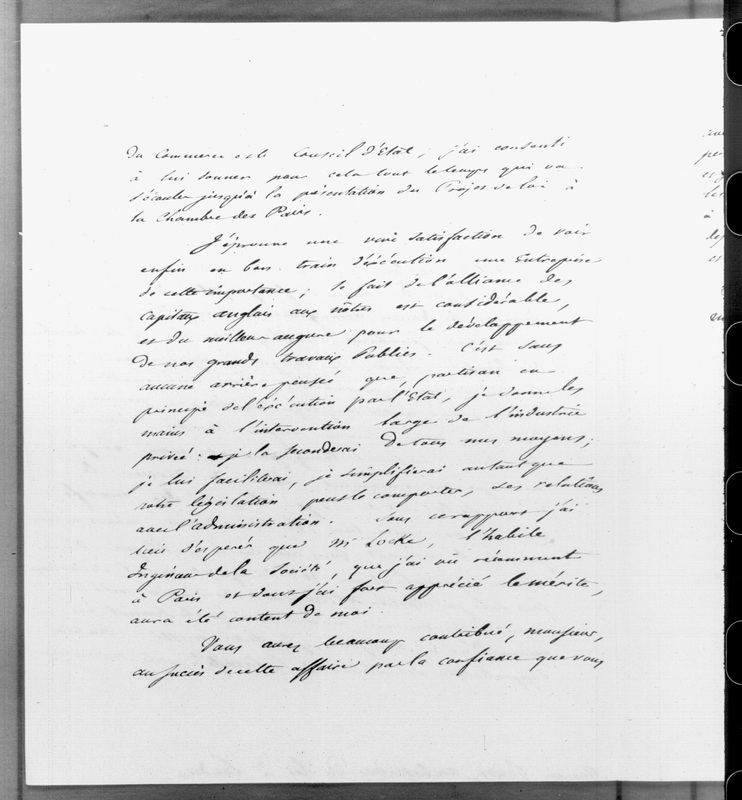 du Commerce et le Conseil d'Etat; j'ai consenti
à lui donner pour cela tout le temps qui va
s'écouler jusqu'à la présentation du Projet de loi à
la Chambre des Pairs.
J'éprouve une vive satisfaction de voir
enfin en bon train d'éxécution une Entreprise
de cette importance; le fait de l'alliance des
capitaux anglais aux nôtres est considérable,
et du meilleur augure pour le développement
de nos grands travaux Publics. C'est sans
aucune arrière pensée que, partisan en
principe de l'éxécution par l'Etat, je donne les
mains à l'intervention large de l'industrie
privée: je la seconderai de tous mes moyens;
je lui faciliterai, je simplifierai autant que
notre législation peut le comporter, ses relations
avec l'administration. Sous ce rapport j'ai
lieu d'espérer que Mr Locke, l'habile
Ingénieur de la Société, que j'ai vu récemment
à Paris et dont j'ai fort apprécié le mérite,
aura été content de moi.
Vous avez beaucoup contribué, monsieur,
au succès de cette affaire par la confiance que vous